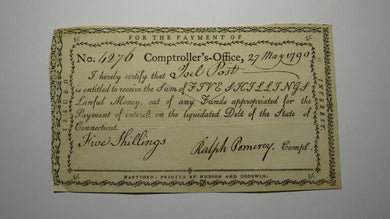 FOR THE PAYMENT OF
No. 4276 Comptroller's-Office, 27 May 1790
I hereby certify that Joel Post
is entitled to receive the Sum of FIVE SHILLINGS
Lawful Money, out of any Funds appropriated for the
Payment of interest on the liquidated Debt of the State of
Connecticut.
Five Shillings Ralph Pomeroy Compt.
HARTFORD: PRINTED BY HUDSON AND GOODWIN.
ISSUED
INTEREST.